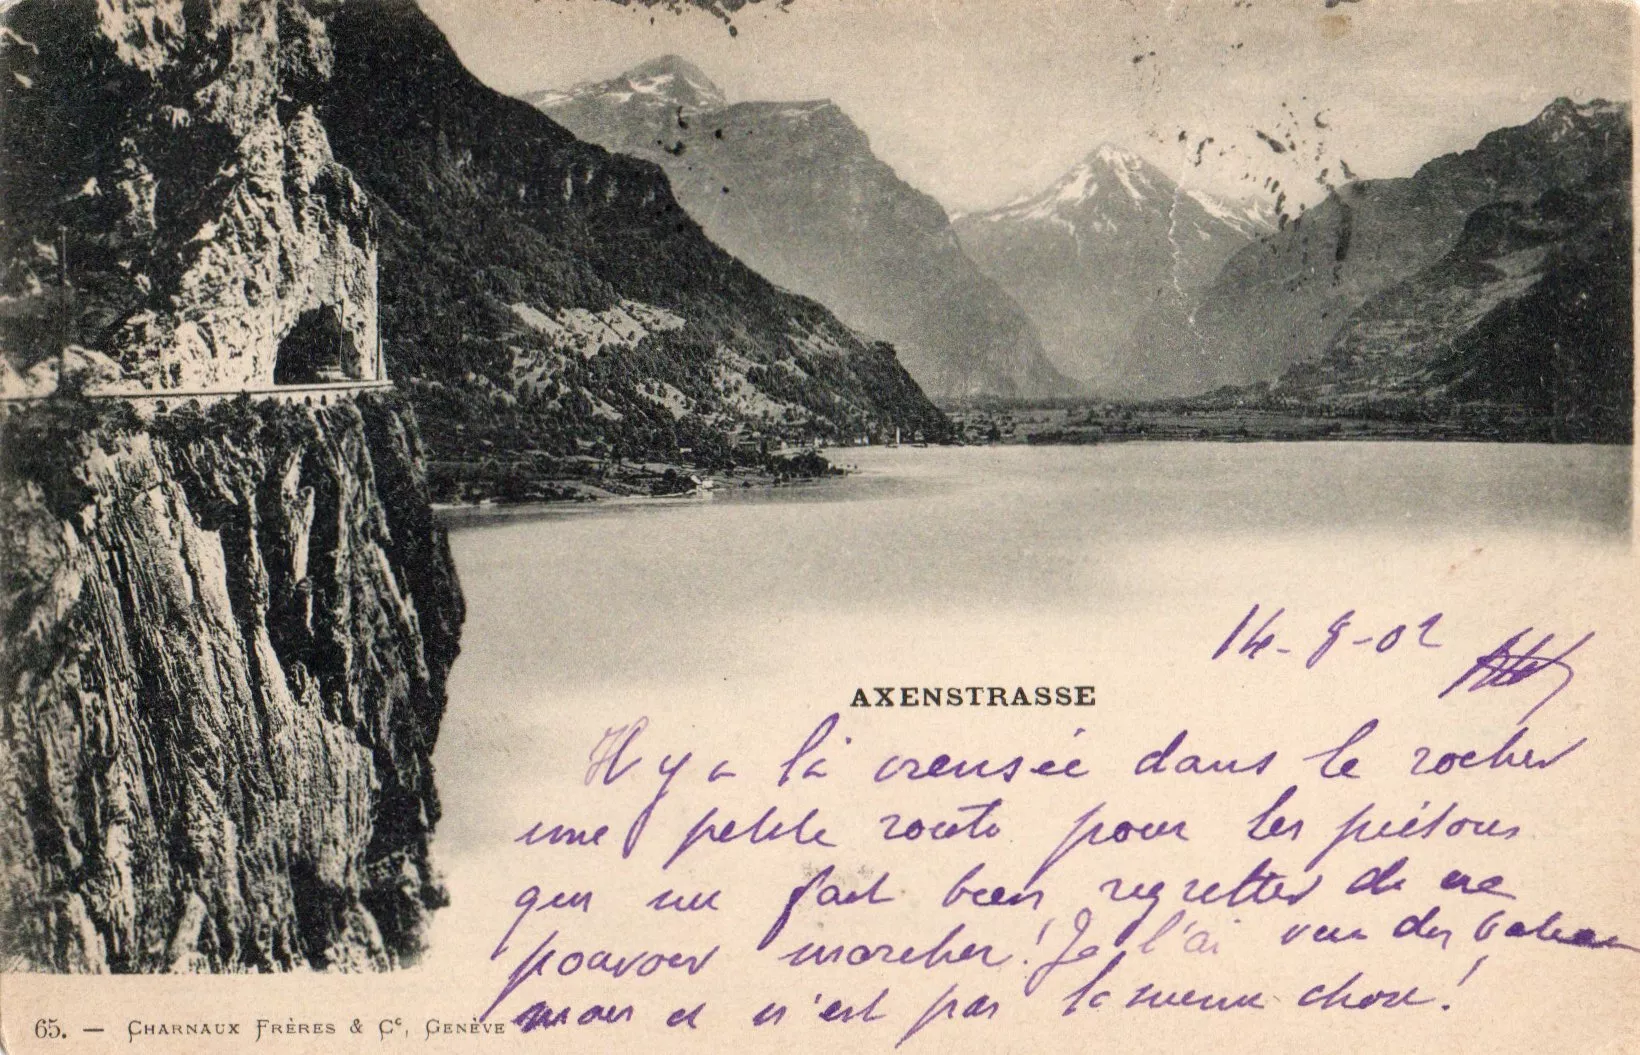 14-8-02
AXENSTRASSE
Il y a là creusée dans le rocher
une petite route pour les piétons
qui me fait bien regretter de ne
pouvoir marcher! Je l'ai vue du bateau
mais ce n'est pas la meme chose!
65. — CHARNAUX FRÈRES & Cᵉ, GENÈVE